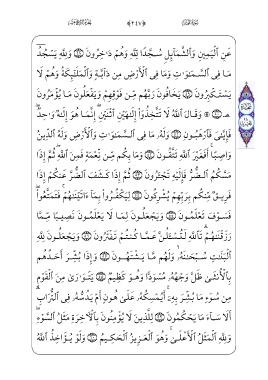 عَنِ ٱلْيَمِينِ وَٱلشَّمَآئِلِ سُجَّدًا لِّلَّهِ وَهُمْ دَٰخِرُونَ ۝ وَلِلَّهِ يَسْجُدُ
مَا فِى ٱلسَّمَٰوَٰتِ وَمَا فِى ٱلْأَرْضِ مِن دَآبَّةٍ وَٱلْمَلَٰٓئِكَةُ وَهُمْ لَا
يَسْتَكْبِرُونَ ۝ يَخَافُونَ رَبَّهُم مِّن فَوْقِهِمْ وَيَفْعَلُونَ مَا يُؤْمَرُونَ
۝ ۞ وَقَالَ ٱللَّهُ لَا تَتَّخِذُوٓا۟ إِلَٰهَيْنِ ٱثْنَيْنِ إِنَّمَا هُوَ إِلَٰهٌ وَٰحِدٌ
فَإِيَّٰىَ فَٱرْهَبُونِ ۝ وَلَهُۥ مَا فِى ٱلسَّمَٰوَٰتِ وَٱلْأَرْضِ وَلَهُ ٱلدِّينُ
وَاصِبًا أَفَغَيْرَ ٱللَّهِ تَتَّقُونَ ۝ وَمَا بِكُم مِّن نِّعْمَةٍ فَمِنَ ٱللَّهِ ثُمَّ إِذَا
مَسَّكُمُ ٱلضُّرُّ فَإِلَيْهِ تَجْـَٔرُونَ ۝ ثُمَّ إِذَا كَشَفَ ٱلضُّرَّ عَنكُمْ إِذَا
فَرِيقٌ مِّنكُم بِرَبِّهِمْ يُشْرِكُونَ ۝ لِيَكْفُرُوا۟ بِمَآ ءَاتَيْنَٰهُمْ فَتَمَتَّعُوا۟
فَسَوْفَ تَعْلَمُونَ ۝ وَيَجْعَلُونَ لِمَا لَا يَعْلَمُونَ نَصِيبًا مِّمَّا
رَزَقْنَٰهُمْ تَٱللَّهِ لَتُسْـَٔلُنَّ عَمَّا كُنتُمْ تَفْتَرُونَ ۝ وَيَجْعَلُونَ لِلَّهِ
ٱلْبَنَٰتِ سُبْحَٰنَهُۥ وَلَهُم مَّا يَشْتَهُونَ ۝ وَإِذَا بُشِّرَ أَحَدُهُم
بِٱلْأُنثَىٰ ظَلَّ وَجْهُهُۥ مُسْوَدًّا وَهُوَ كَظِيمٌ ۝ يَتَوَٰرَىٰ مِنَ ٱلْقَوْمِ
مِن سُوٓءِ مَا بُشِّرَ بِهِۦٓ أَيُمْسِكُهُۥ عَلَىٰ هُونٍ أَمْ يَدُسُّهُۥ فِى ٱلتُّرَابِ
أَلَا سَآءَ مَا يَحْكُمُونَ ۝ لِلَّذِينَ لَا يُؤْمِنُونَ بِٱلْـَٔاخِرَةِ مَثَلُ ٱلسَّوْءِ
وَلِلَّهِ ٱلْمَثَلُ ٱلْأَعْلَىٰ وَهُوَ ٱلْعَزِيزُ ٱلْحَكِيمُ ۝ وَلَوْ يُؤَاخِذُ ٱللَّهُ